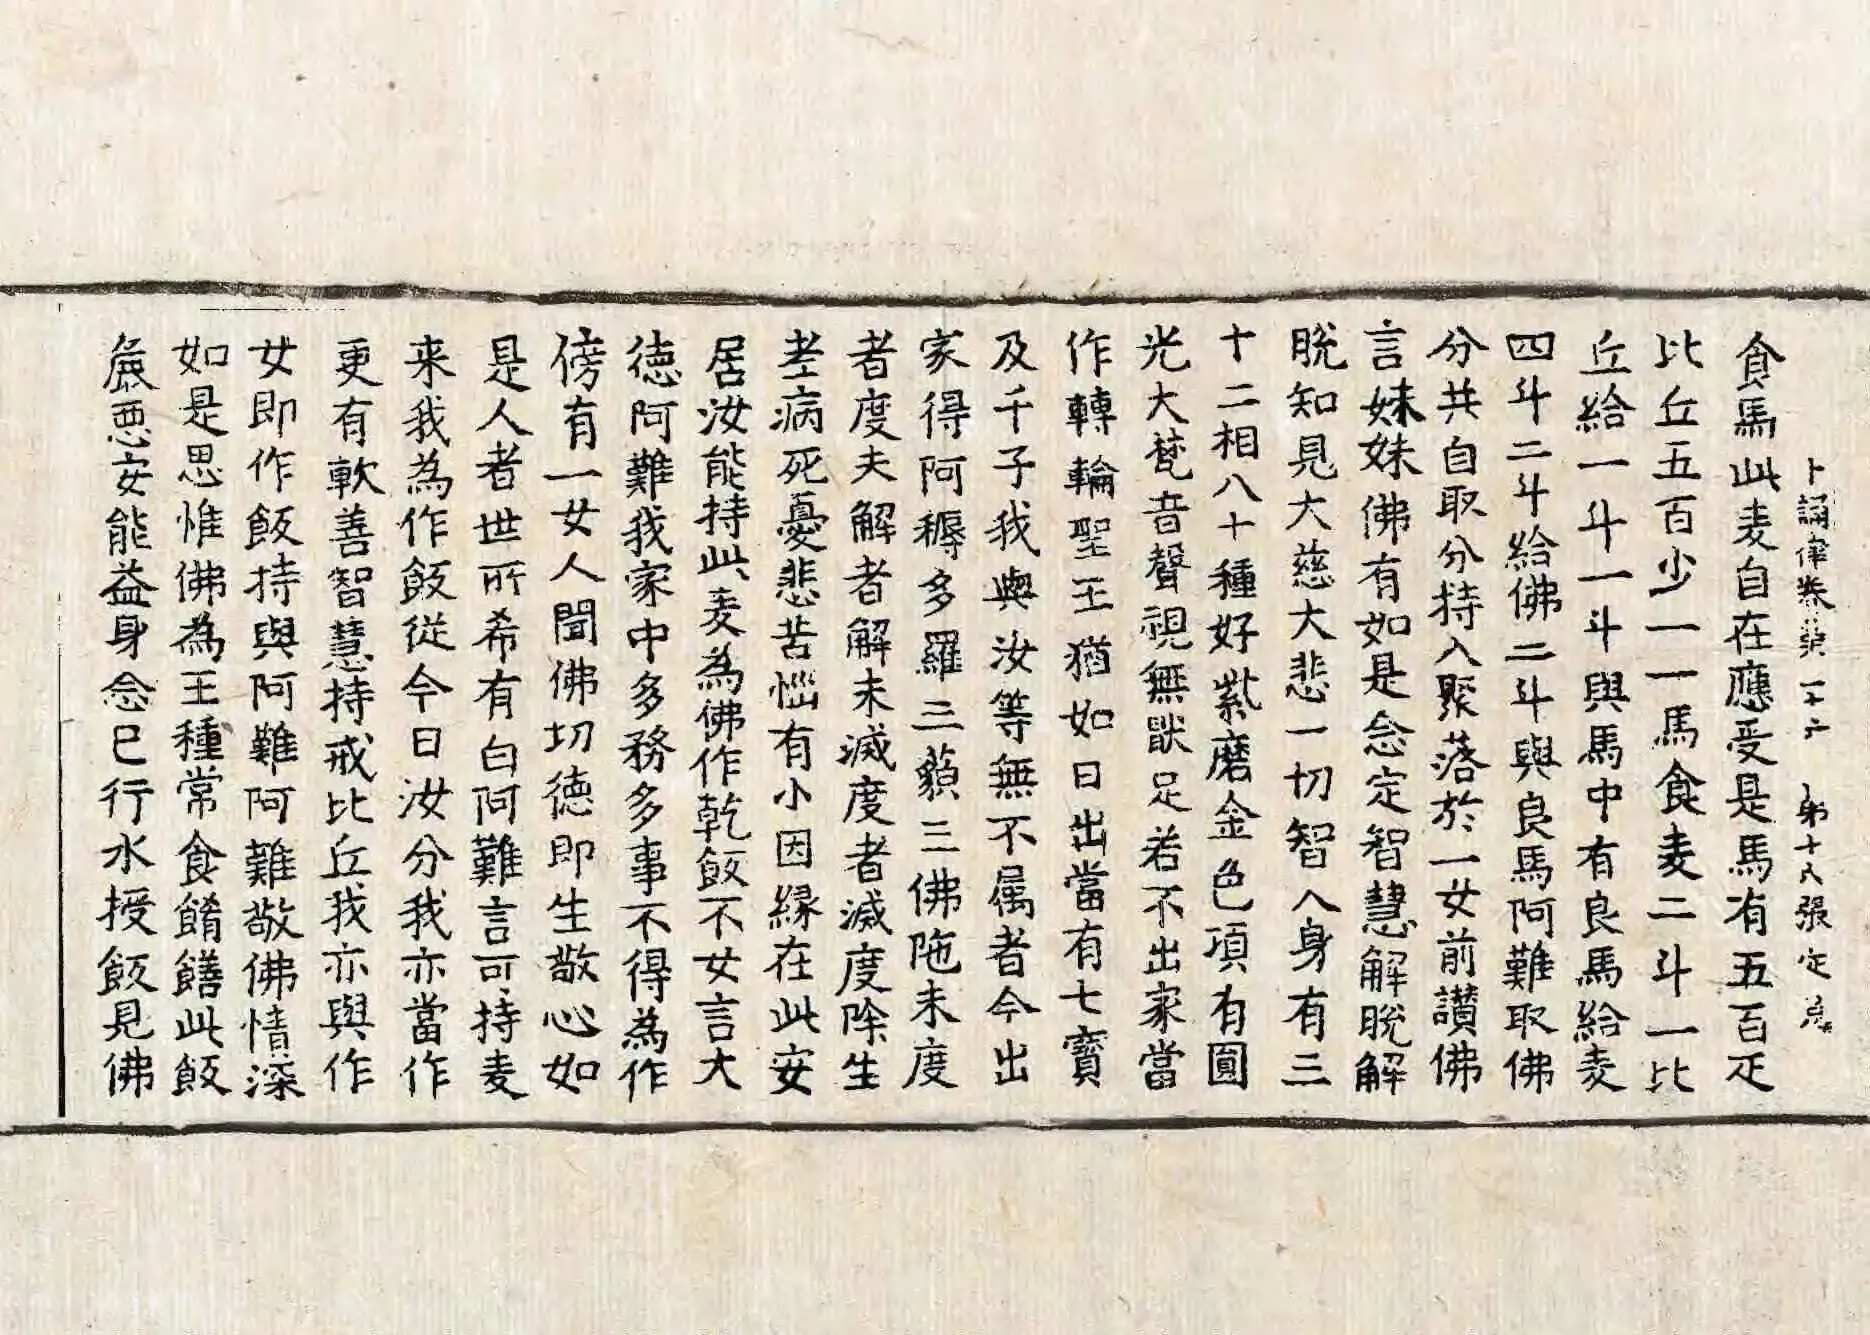 十誦律卷第二十六 第十八張 定字号
食馬此麦自在應受是馬有五百疋
比丘五百少一一馬食麦二斗一比
丘給一斗一斗與馬中有良馬給麦
四斗二斗給佛二斗與良馬阿難取佛
分共自取分持入聚落於一女前讃佛
言姝妹佛有如是念定智慧解脫解
脫知見大慈大悲一切智人身有三
十二相八十種好紫磨金色項有圓
光大梵音聲視無猒足若不出家當
作轉輪聖王猶如日出當有七寳
及千子我與汝等無不属者今出
家得阿耨多羅三藐三佛陁未度
者度夫解者解未滅度者滅度除生
老病死憂悲苦惱有小因縁在此安
居汝能持此麦為佛作乾飯不女言大
徳阿難我家中多務多事不得為作
傍有一女人聞佛切徳即生敬心如
是人者世所希有白阿難言可持麦
来我為作飯從今日汝分我亦當作
更有軟善智慧持戒比丘我亦與作
女即作飯持與阿難阿難敬佛情深
如是思惟佛為王種常食餚饍此飯
麁悪安能益身念已行水授飯見佛